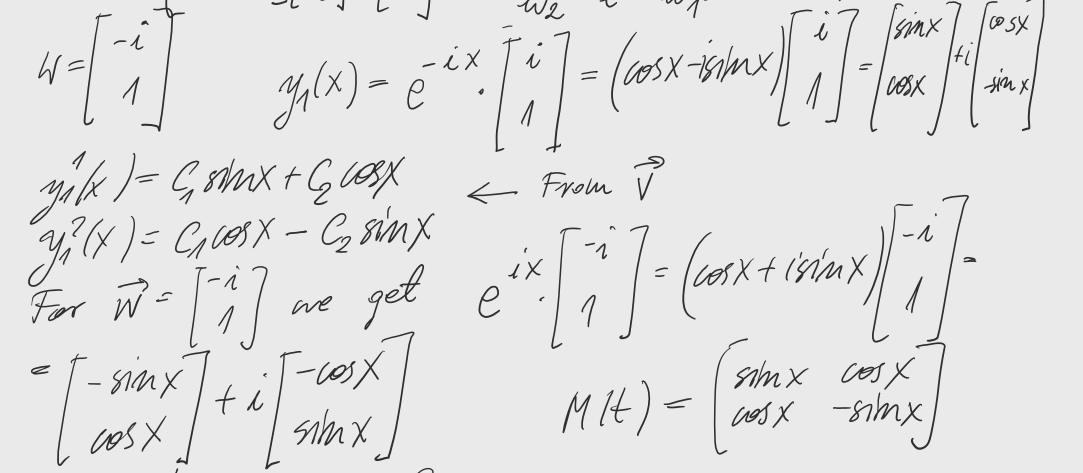 w = [-i 1] y_1(x) = e^{-ix} · [i 1] = (cosx - isinx) [i 1] = [sinx cosx] + i [cosx -sinx]
y_1^1(x) = C_1 sinx + C_2 cosx ← From \vec{V}
y_1^2(x) = C_1 cosx - C_2 sinx
For \vec{w} = [-i 1] we get e^{ix} · [-i 1] = (cosx + isinx) [-i 1] =
= [-sinx cosx] + i [-cosx sinx] M(t) = [sinx cosx cosx -sinx]